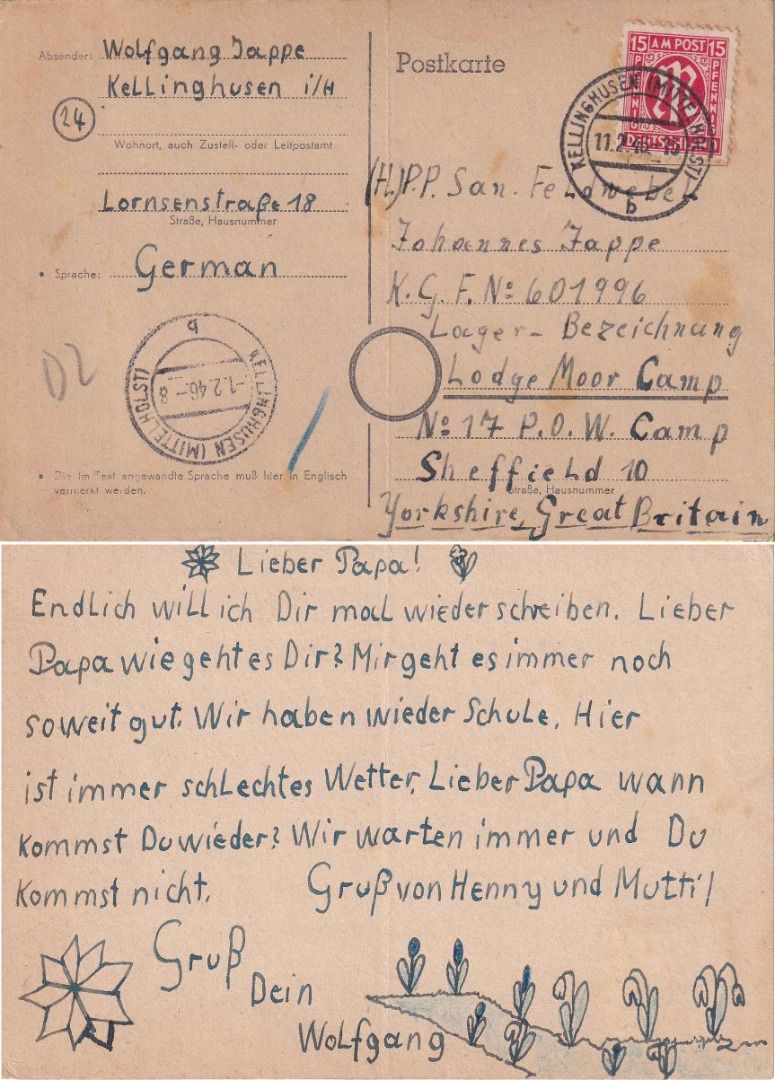 Absender: Wolfgang Jappe
Kellinghusen i/H
24
Wohnort, auch Zustell- oder Leitpostamt
Lornsenstraße 18
Straße, Hausnummer
• Sprache: German
KELLINGHUSEN (MITTELHOLST)
-1.2.46.-8
b
D2
• Die im Text angewandte Sprache muß hier in Englisch
vermerkt werden.
Postkarte
15 AM POST 15
PFENNIG PFENNIG
DEUTSCHLAND
KELLINGHUSEN (MITTELHOLST)
11.2.46
b
(H.)P.P. San. Feldwebel
Johannes Jappe
K.G.F. No: 601996
Lager- Bezeichnung
Lodge Moor Camp
No: 17 P.O.W. Camp
Sheffield 10
Straße, Hausnummer
Yorkshire, Great Britain
Lieber Papa!
Endlich will ich Dir mal wieder schreiben. Lieber
Papa wie geht es Dir? Mir geht es immer noch
soweit gut. Wir haben wieder Schule. Hier
ist immer schlechtes Wetter. Lieber Papa wann
kommst Du wieder? Wir warten immer und Du
kommst nicht. Gruß von Henny und Mutti!
Gruß
Dein
Wolfgang